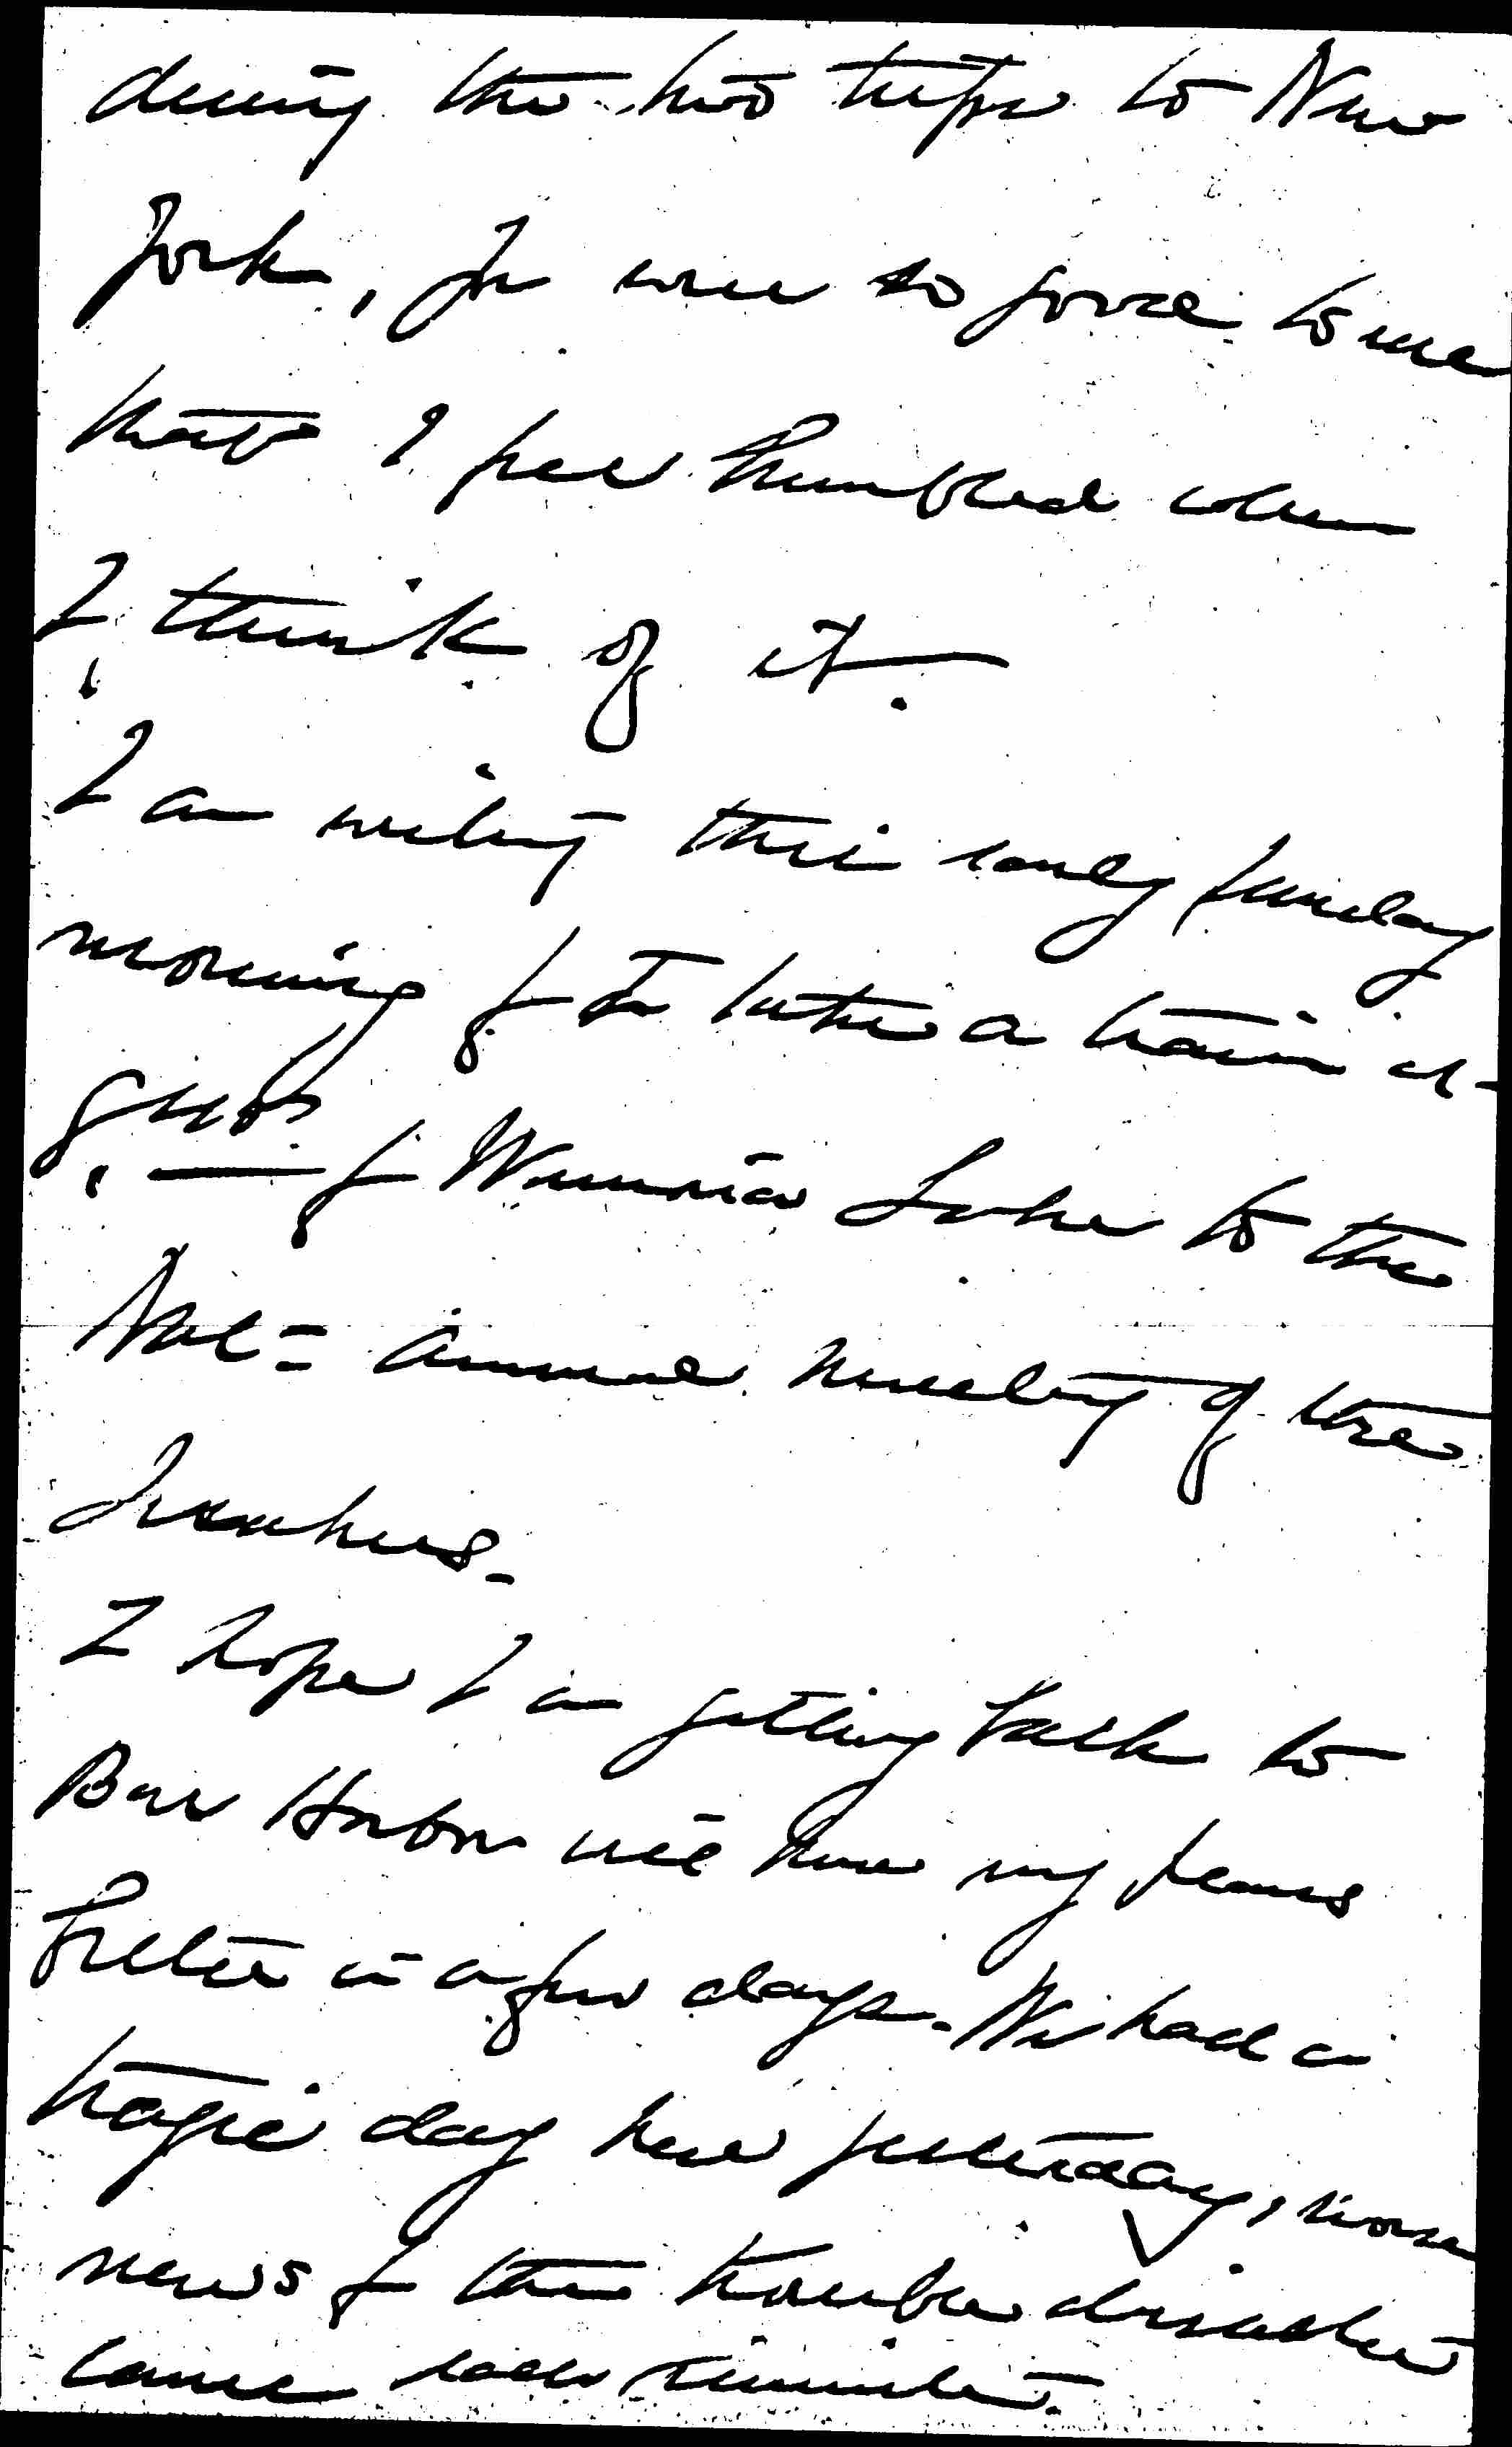 during the two trips to New
York, you were so good to me
that I feel humbled when
I think of it.
I am writing this early Sunday
morning & to take a train at
& Lake to the
annual meeting of the
Teachers.
I hope I am getting back to
Bar Harbor will have my
better in a few days. We had a
tragic day here yesterday, when
news of the horrible disaster
came each minute.